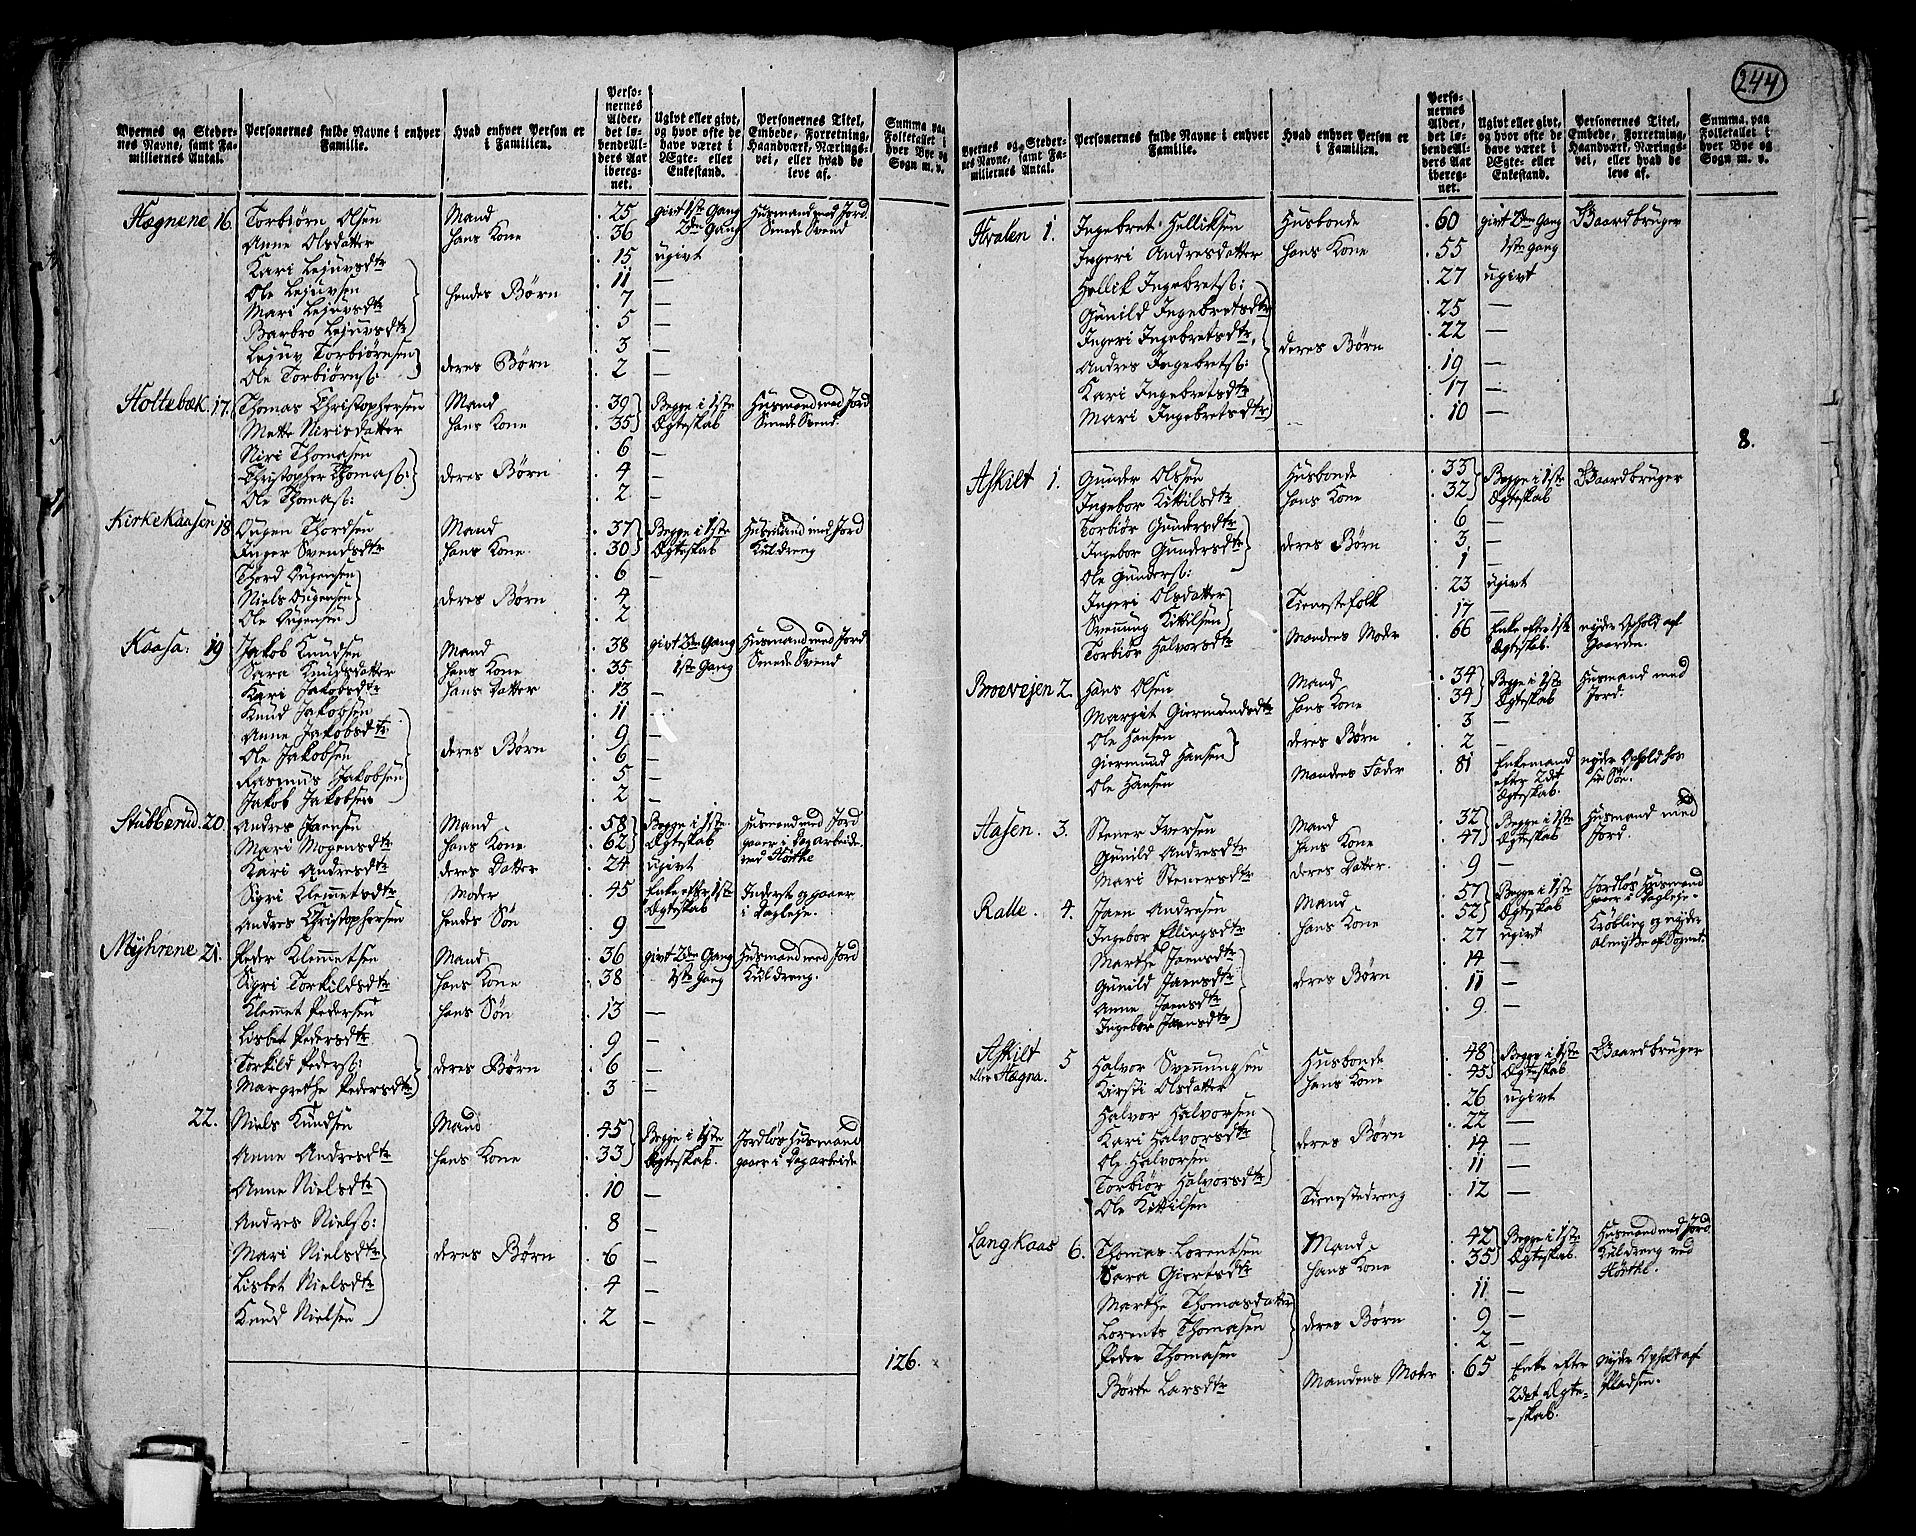 244
Byernes og Steder-
nes Navne, samt Fa-
miliernes Antal.
Personernes fulde Navne i enhver
Familie.
Hvad enhver Person er
i Familien.
Perso-
nernes
Alder,
det lø-
bende Al-
ders Aar
ibereg-
net.
Ugivt eller givt,
og hvor ofte de
have været i
Ægte- eller
Enkestand.
Personernes Titel,
Embede, Forretning,
Haandværk, Nærings-
vei, eller hvad de
leve af.
Summa paa
Folketallet i
hver Bye og
Sogn m. v.
Hægnene 16. Torbiørn Olsen Mand 25 givt 1ste Gang Husmand med Jord
Anne Olsdatter hans Kone 36 2den Gang Smede Svend
Kari Lejuvsdtr 15 ugivt
Ole Lejuvsen 11 —
Mari Lejuvsdtr hendes Børn 7 —
Barbro Lejuvsdtr 5 —
Lejuv Torbiørnsen 3 —
Ole Torbiørns: deres Børn 2 —
Holtebæk. 17. Thomas Christophersen Mand 39 Begge i 1ste Husmand med Jord
Mette Nirisdatter hans Kone 35 Ægteskab Smede Svend.
Niri Thomasen 6 —
Christopher Thomas: deres Børn 4 —
Ole Thomas: 2 —
KirkeKaasen 18 Ougen Thordsen Mand 37 Begge i 1ste Husmand med Jord
Inger Svendsdtr hans Kone 30 Ægteskab Kuldreng
Thord Ougensen 6 —
Niels Ougensen deres Børn 4 —
Ole Ougensen 2 —
Kaasa: 19 Jakob Knudsen Mand 38 givt 2den Gang Husmand med Jord
Sara Knudsdatter hans Kone 35 1ste Gang Smede Svend
Kari Jakobsdtr hans Datter 13 —
Knud Jakobsen 11 —
Anne Jakobsdtr 9 —
Ole Jakobsen deres Børn 6 —
Rasmus Jakobsen 5 —
Jakob Jakobsen 2 —
Stubberud. 20. Andres Jaensen Mand 58 Begge i 1ste Husmand med Jord
Mari Mogensdtr hans Kone 62 Ægteskab gaaer i Dagarbeide
Kari Andresdtr deres Datter 24 ugivt ved Hørthe
Sigri Klemmetsdtr Moder 45 Enke efter 1ste Inderst og gaaer
Andres Christophersen hendes Søn 9 Ægteskab i Dagleje.
Myhrene 21. Peder Klemmetsen Mand 36 givt 2den Gang Husmand med Jord
Sigri Torkildsdtr hans Kone 38 1ste Gang Kuldreng.
Klemmet Pedersen hans Søn 13 —
Lisbet Pedersdtr 9 —
Torkild Peders: deres Børn 6 —
Margrethe Pedersdtr 3 —
22. Niels Knudsen Mand 45 Begge i 1ste Jordløs Husmand
Anne Andresdtr hans Kone 33 Ægteskab. gaaer i Dagarbeide
Anne Nielsdtr 10 —
Andres Niels: 8 —
Mari Nielsdtr deres Børn 6 —
Lisbet Nielsdtr 4 —
Knud Nielsen 2 —
126.
Byernes og Steder-
nes Navne, samt Fa-
miliernes Antal.
Personernes fulde Navne i enhver
Familie.
Hvad enhver Person er
i Familien.
Perso-
nernes
Alder,
det lø-
bende Al-
ders Aar
iberegn-
net.
Ugivt eller givt,
og hvor ofte de
have været i
Ægte- eller
Enkestand.
Personernes Titel,
Embede, Forretning,
Haandværk, Nærings-
vei, eller hvad de
leve af.
Summa paa
Folketallet i
hver Bye og
Sogn m. v.
Hvalen 1. Ingebret Helliksen Husbonde 60 givt 2den Gang Gaardbruger
Ingeri Andresdatter hans Kone 55 1ste Gang
Hellik Ingebrets: 27 ugivt
Gunild Ingebretsdtr 25 —
Ingeri Ingebretsdtr. 22 —
Andres Ingebrets: deres Børn 19 —
Kari Ingebretsdtr 17 —
Mari Ingebretsdtr 10 —
8.
Askilt 1. Gunder Olsen Husbonde 33 Begge i 1ste Gaardbruger
Ingebor Kittilsdtr hans Kone 32 Ægteskab
Torbiør Gundersdtr 6 —
Ingebor Gundersdtr deres Børn 3 —
Ole Gunders: 1 —
Ingeri Olsdatter 23 ugivt
Svennung Kittilsen Tienestefolk 17 —
Torbiør Halvorsdtr Mandens Moder 66 Enke efter 1ste nyder Ophold af
Ægteskab. Gaarden.
Broevejen 2. Hans Olsen Mand 34 Begge i 1ste Husmand med
Margit Giermundsdtr hans Kone 34 Ægteskab Jord.
Ole Hansen 3 —
Giermund Hansen deres Børn 2 —
Ole Hansen Mandens Fader 81 Enkemand nyder Ophold hos
efter 2det sin Søn.
Ægteskab.
Aasen. 3. Stener Iversen Mand 32 Begge i 1ste Husmand med
Gunild Andresdtr hans Kone 47 Ægteskab Jord.
Mari Stenersdtr deres Datter. 9 —
Ralle. 4. Jaen Andresen Mand 57 Begge i 1ste Jordløs Husmand
Ingebor Ellingsdtr hans Kone 52 Ægteskab gaaer i Dagleje.
Marthe Jaensdtr 27 ugivt Krøbling og nyder
Gunild Jaensdtr deres Børn 14 — Almisse af Sognet.
Anne Jaensdtr 11 —
Ingebor Jaensdtr 9 —
Askilt 5 Halvor Svennungsen Husbonde 48 Begge i 1ste Gaardbruger
eller Hægna. Kirsti Olsdatter hans Kone 45 Ægteskab
Halvor Halvorsen 26 ugivt
Kari Halvorsdtr deres Børn 22 —
Ole Halvorsen 14 —
Torbiør Halvorsdtr 11 —
Ole Kittilsen Tienestedreng 12 —
LangKaas 6. Thomas Lorentsen Mand 42 Begge i 1ste Husmand med Jord
Sara Giertsdtr hans Kone 35 Ægteskab. Kuldreng ved
Marthe Thomasdatter 11 — Hørthe.
Lorents Thomasen deres Børn 9 —
Peder Thomasen 2 —
Børte Larsdtr Mandens Moder 65 Enke efter nyder Ophold af
2det Ægte- Pladsen.
-skab.